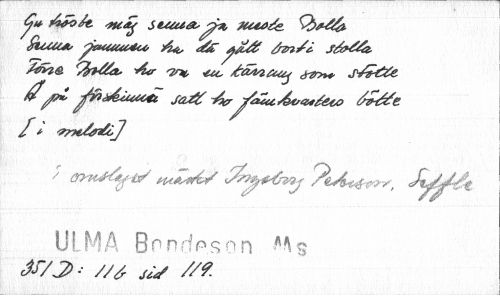 Gu tröste mäg senna ja meste Bolla
Senna jammen ha dö gått bort i stolla
Förre Bolla ho va en kärrang som stotte
Å på förskinnä satt ho
[i melodi]
i omslaget märkt Ingeborg Peterson, Seffle
ULMA Bondeson Ms
351 D: 11 b sid 119.